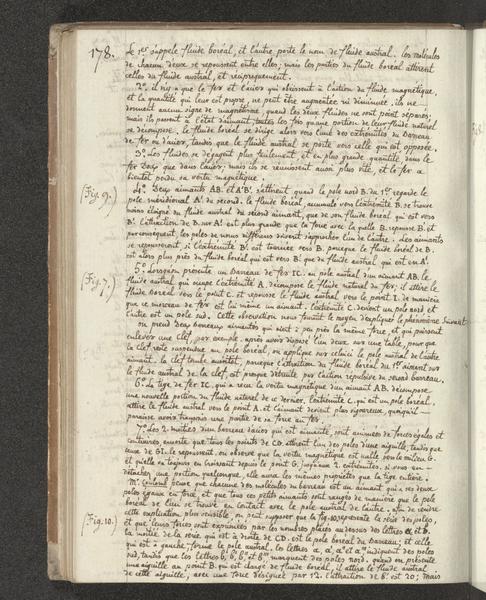 178.
Le 1er s'appele fluide boréal, et l'autre porte le nom de fluide austral. les molécules
de chacun d'eux se repoussent entre elles; mais les parties du fluide boréal attirent
celles du fluide austral, et réciproquement.
2º. il n'y a que le fer et l'acier qui obéissent à l'action du fluide magnétique,
et la quantité qui leur est propre, ne peut être augmentée ni diminuée, ils ne
donnent aucun signe de magnétisme, quand les deux fluides ne sont point séparés;
mais ils passent à l'état d'aimant, toutes les fois qu'une portion de leur fluide naturel
se décompose. le fluide boréal se dirige alors vers l'une des extrémités du Barreau
de fer ou d'acier, tandis que le fluide austral se porte vers celle qui est opposée.
3º. Les fluides se dégagent plus facilement, et en plus grande quantité dans le
fer doux que dans l'acier; mais ils se réunissent aussi plus vite, et le fer a
bientôt perdu sa vertu magnétique.
(Fig. 9.)
4º. Deux aimants AB. et A'B'. s'attirent quand le pole nord B. du 1er regarde le
pole méridional A'. du second. le fluide boréal, accumulé vers l'extrémité B. se trouve
moins éloigné du fluide austral du second aimant, que de son fluide boréal qui est vers
B'. l'attraction de B. sur A'. est plus grande que la force avec laquelle B. repousse B'. et
par conséquent, les poles de noms différens doivent s'approcher l'un de l'autre. Les aimants
se repousseront si l'extrémité B'. est tournée vers B. parceque le fluide boréal de B.
est alors plus près du fluide boréal qui est vers B'. que du fluide austral qui est en A'.
(Fig. 7.)
5º. Lorsqu'on présente un Barreau de fer IC. au pole austral d'un aimant AB, le
fluide austral qui occupe l'extrémité A. décompose le fluide naturel du fer; il attire le
fluide Boréal vers le point C. et repousse le fluide austral vers le point I. de manière
que ce morceau de fer est lui même un aimant. l'extrémité C. devient un pole nord et
l'autre est un pole sud. Cette observation nous fournit le moyen d'expliquer le phénomène suivant
on prend deux barreaux aimantés qui aient à peu près la même force, et qui puissent
enlever une Clef, par exemple. après avoir disposé l'un deux sur une table, pour que
la Clef reste suspendue au pole boréal, on applique sur celui-ci le pole austral de l'autre
aimant. la clef tombe aussitôt, parceque l'attraction du fluide boréal du 1er aimant sur
le fluide austral de la clef, est presque détruite par l'action répulsive du second Barreau.
6º. La tige de fer IC, qui a reçu la vertu magnétique d'un aimant AB, décompose
une nouvelle portion du fluide naturel de ce dernier. l'extrémité C. qui est un pole boréal,
attire le fluide austral vers le point A. et l'aimant devient plus vigoureux, quoiqu'il
paraisse avoir transmis une partie de sa force au fer.
7º. Les 2 moitiés d'un barreau d'acier qui est aimanté, sont animées de forces égales et
contraires, ensorte que tous les points de CD. attirent l'un des poles d'une aiguille, tandis que
ceux de GI. le repoussent. on observe que la vertu magnétique est nulle vers le milieu G.
et qu'elle va toujours en croissant depuis le point G. jusqu'aux 2. extrémités. si vous en
détachez une portion quelconque, elle aura les mêmes propriétés que la tige entière.
Mr. Coulomb pense que chacune des molécules du barreau est un aimant qui a ses deux
poles égaux en force, et que tous ces petits aimants sont rangés de manière que le pole
boréal de l'un se trouve en contact avec le pole austral de l'autre. afin de rendre
(Fig. 10.)
cette explication plus sensible, on peut supposer que la fig. 10. représente la série des poles,
et que leurs forces sont exprimées par les nombres placés au dessus des lettres a. et b.
la moitié de la série qui est à droite de CD. est le pole boréal du Barreau; et celle
qui est à gauche forme le pole austral. les lettres a, a', a'' et a''' indiquent des poles
sud, tandis que les lettres b, b', b'' et b''' marquent des poles nord. quand on présente
une aiguille au point B. qui est chargé de fluide boréal, il attire le fluide austral
de cette aiguille, avec une force désignée par 12. l'attraction de b'. est 20; mais